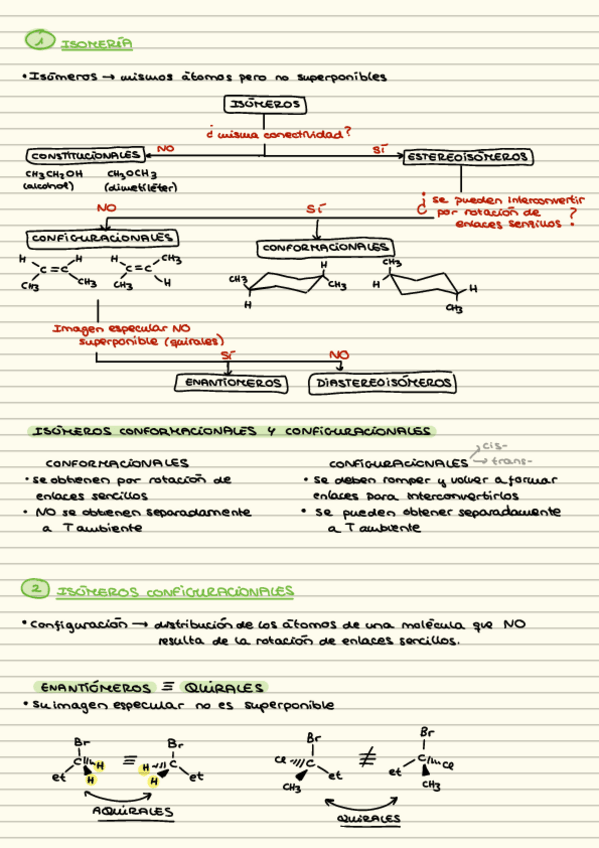 1 ISOMERÍA
• Isómeros → mismos átomos pero no superponibles
ISÓMEROS
¿ misma conectividad?
NO
SÍ
CONSTITUCIONALES
ESTEREOISÓMEROS
CH3CH2OH
(alcohol)
CH3OCH3
(dimetiléter)
¿ se pueden interconvertir
por rotación de
enlaces sencillos ?
NO
SÍ
CONFIGURACIONALES
CONFORMACIONALES
H H
C=C
CH3 CH3
H CH3
C=C
CH3 H
CH3 H
H CH3
CH3
H H
CH3
Imagen especular NO
superponible (quirales)
SÍ
NO
ENANTIÓMEROS
DIASTEREOISÓMEROS
ISÓMEROS CONFORMACIONALES Y CONFIGURACIONALES
CONFORMACIONALES
• se obtienen por rotación de
enlaces sencillos
• NO se obtienen separadamente
a T ambiente
CONFIGURACIONALES → cis-
→ trans-
• se deben romper y volver a formar
enlaces para interconvertirlos
• se pueden obtener separadamente
a T ambiente
2 ISÓMEROS CONFIGURACIONALES
• Configuración → distribución de los átomos de una molécula que NO
resulta de la rotación de enlaces sencillos.
ENANTIÓMEROS ≡ QUIRALES
• Su imagen especular no es superponible
Br
C H
et H
≡
Br
H C
H et
AQUIRALES
Br
Cl C
CH3 et
≢
Br
C Cl
et CH3
QUIRALES